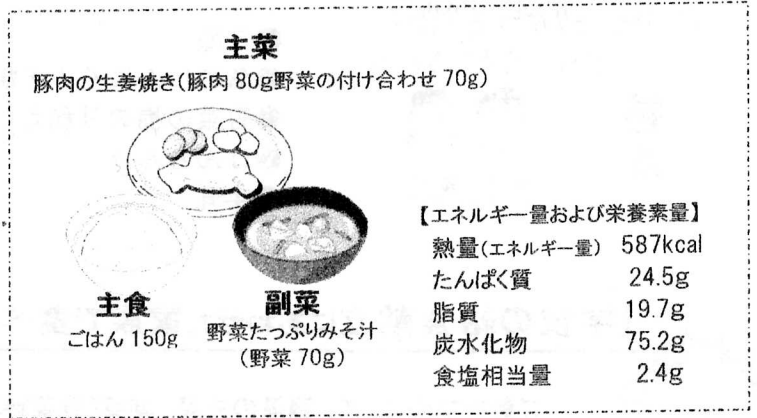 主菜
豚肉の生姜焼き(豚肉 80g野菜の付け合わせ 70g)
主食
ごはん 150g
副菜
野菜たっぷりみそ汁
(野菜 70g)
【エネルギー量および栄養素量】
熱量(エネルギー量) 587kcal
たんぱく質 24.5g
脂質 19.7g
炭水化物 75.2g
食塩相当量 2.4g